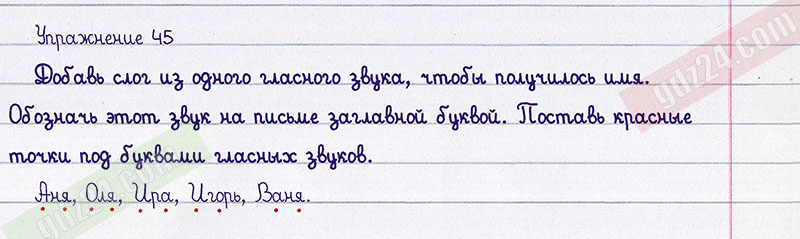 Упражнение 45
Добавь слог из одного гласного звука, чтобы получилось имя.
Обозначь этот звук на письме заглавной буквой. Поставь красные
точки под буквами гласных звуков.
Аня, Оля, Ира, Игорь, Ваня.
gdz24.com
gdz24.com